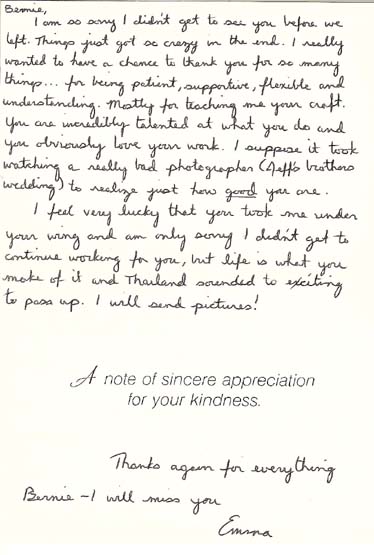 Bernie,
I am so sorry I didn't get to see you before we
left. Things just got so crazy in the end. I really
wanted to have a chance to thank you for so many
things... for being patient, supportive, flexible and
understanding. Mostly for teaching me your craft.
You are incredibly talented at what you do and
you obviously love your work. I suppose it took
watching a really bad photographer (Jeff's brothers
wedding) to realize just how good you are.
I feel very lucky that you took me under
your wing and am only sorry I didn't get to
continue working for you, but life is what you
make of it and Thailand sounded to exciting
to pass up. I will send pictures!
A note of sincere appreciation
for your kindness.
Thanks again for everything
Bernie - I will miss you
Emma